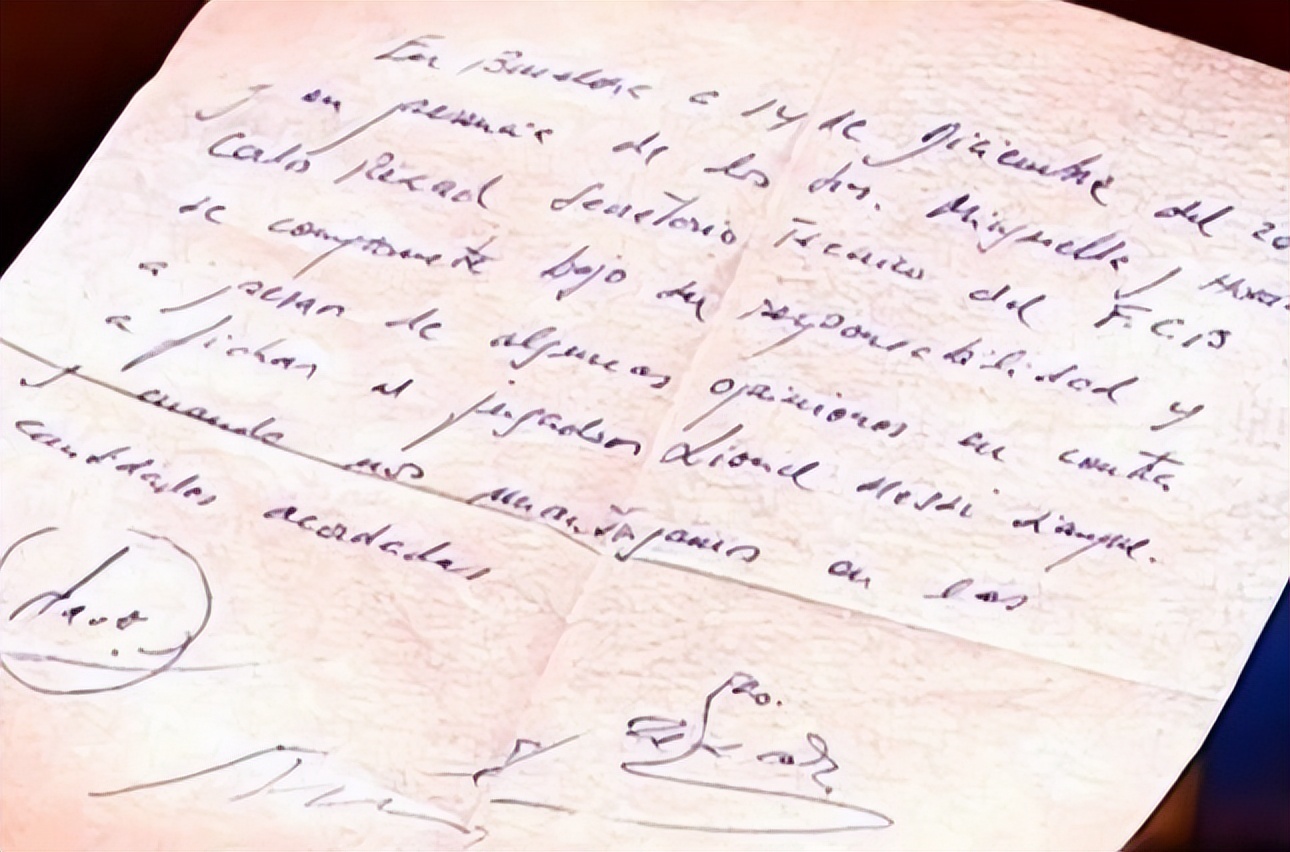 En Barcelona a 14 de Diciembre del 20
y en presencia de los Srs. Minguella y Hora
Carlos Rexach Secretario Técnico del F.C.B
se compromete bajo su responsabilidad y
a pesar de algunas opiniones en contra
a fichar al jugador Lionel Messi siempre.
y cuando nos mantengamos en las
cantidades acordadas